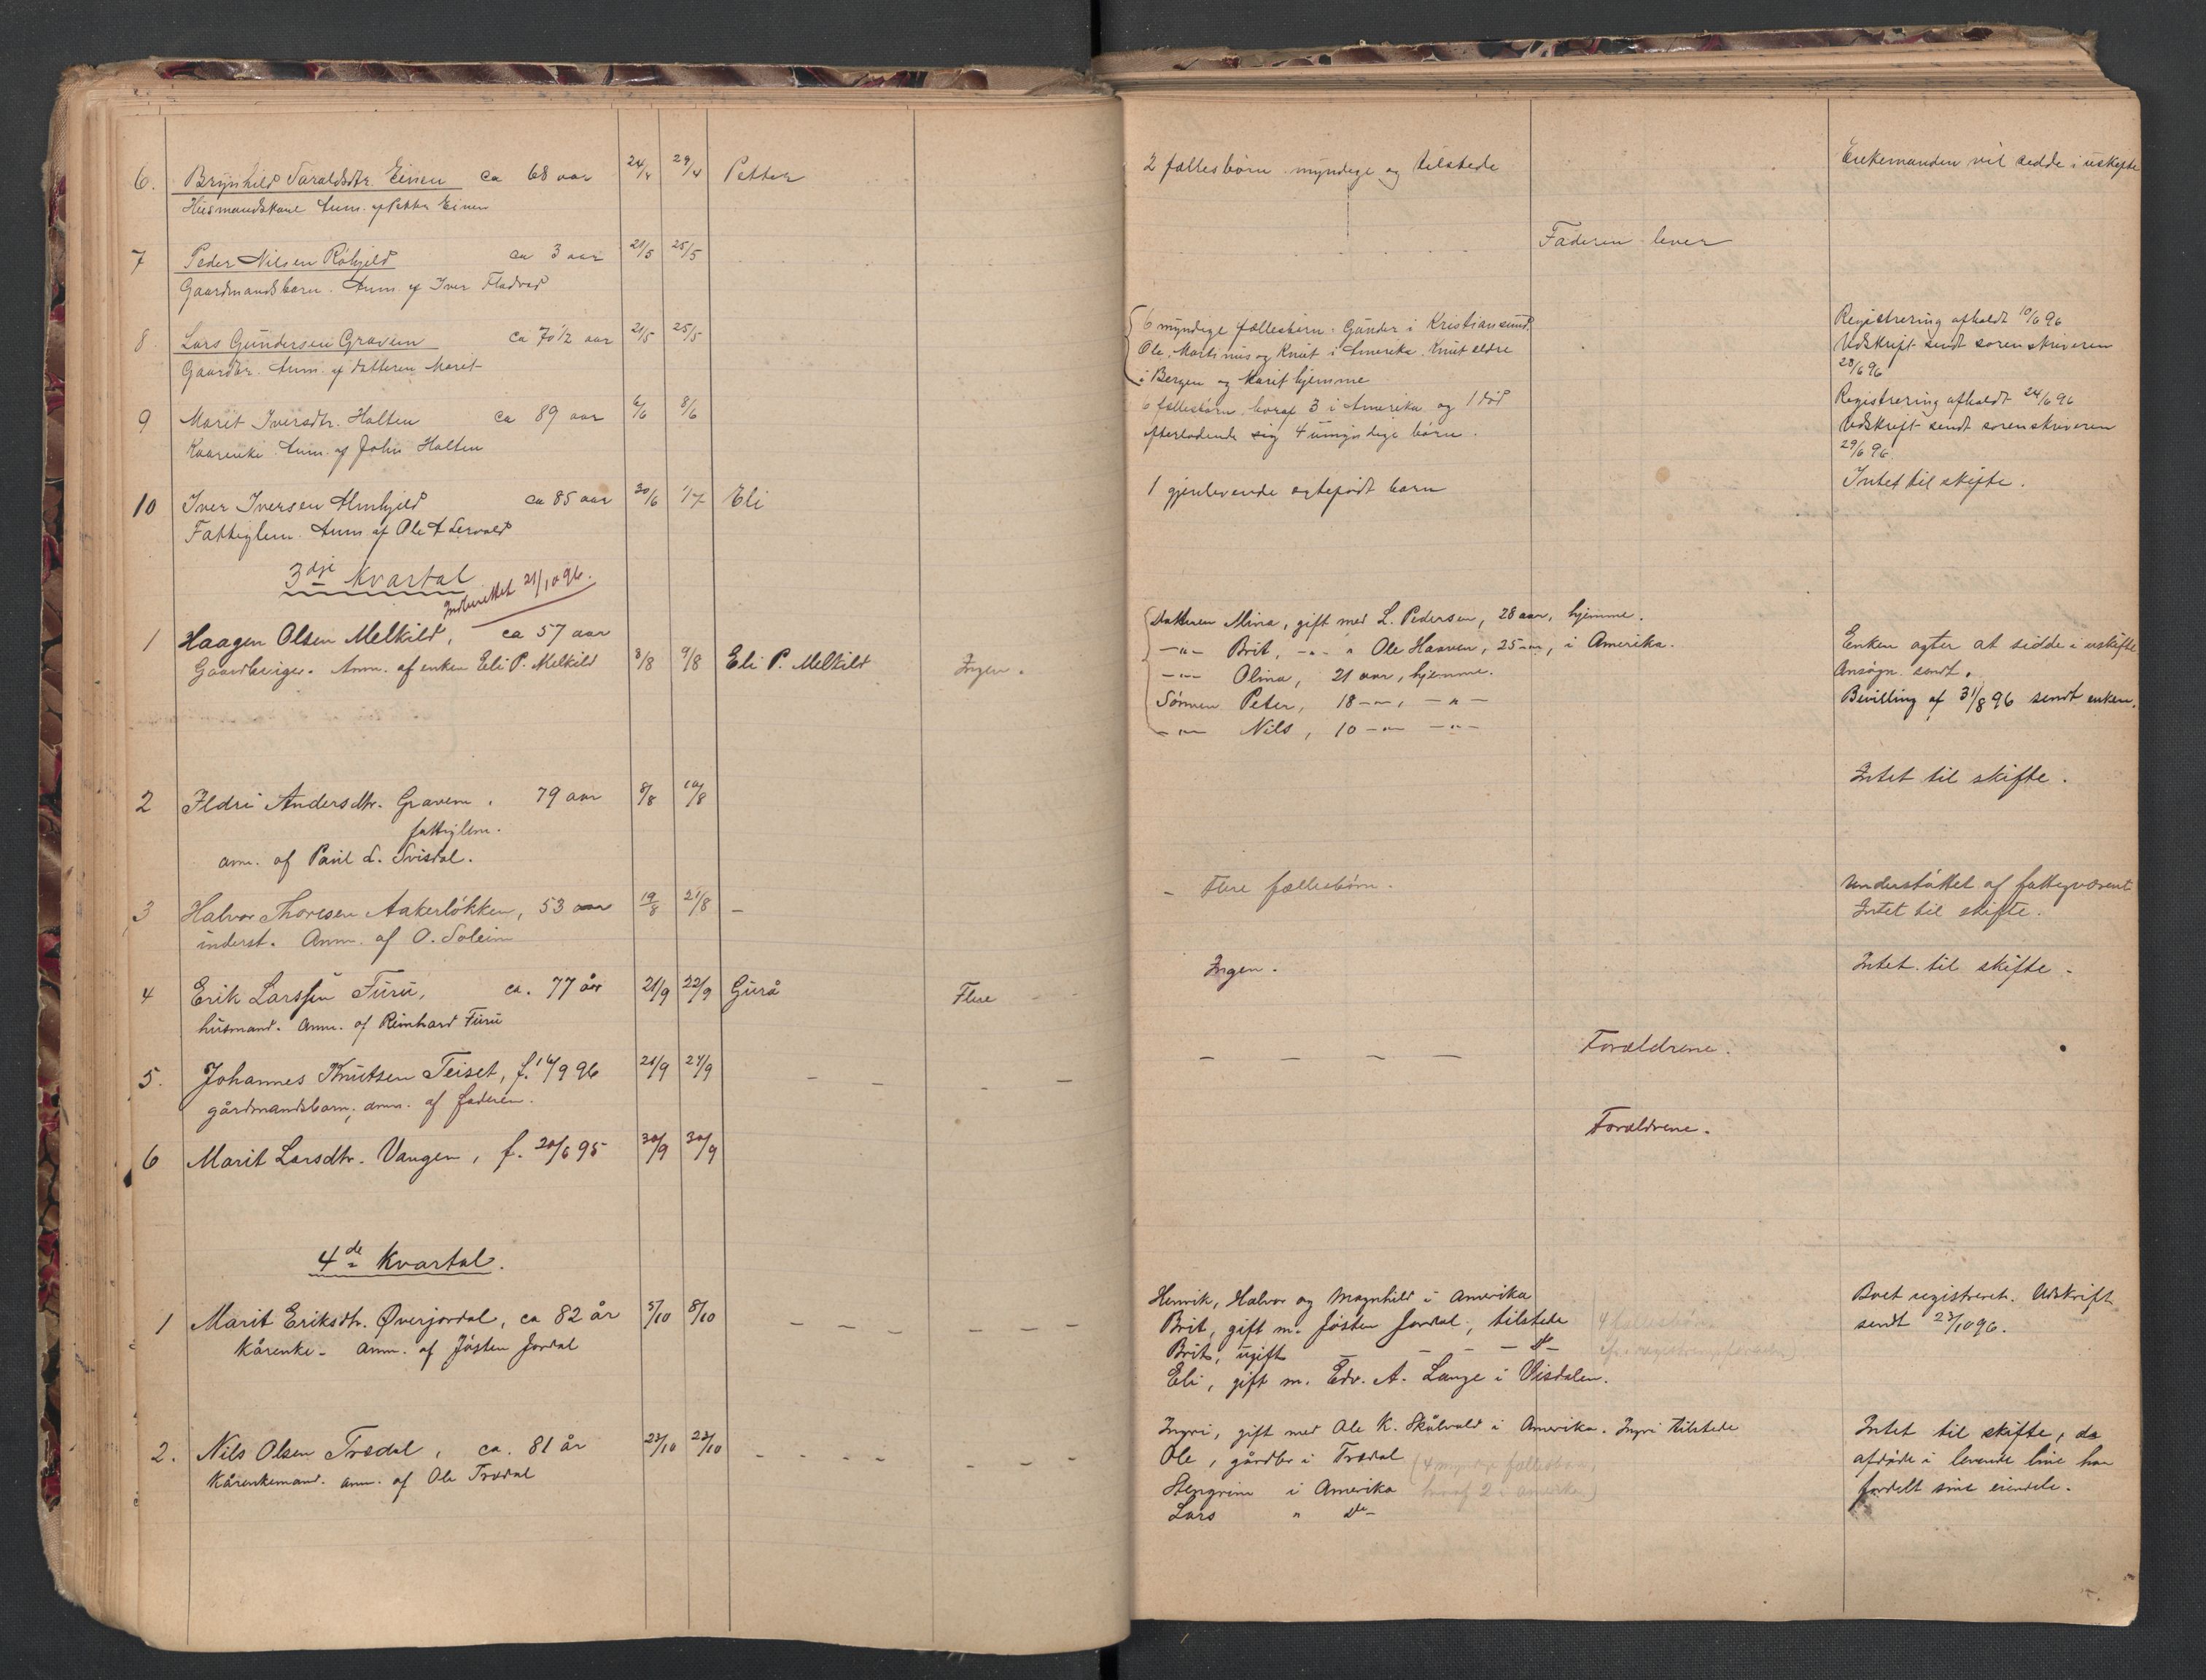 6. Brynhild Taraldsdtr. Einen ca 68 aar 24/4 29/4 Petter
Husmandskone Anm. af Petter Einen
2 fællesbørn myndige og tilstede
Enkemanden vil sidde i uskifte
7 Peder Nilsen Röhjeld ca 3 aar 21/5 25/5
Gaardmandsbarn. Anm. af Iver Fladvad
Faderen lever
8 Lars Gundersen Gravem ca 70 1/2 aar 21/5 25/5
Gaardbr. Anm. af datteren Marit
6 myndige fællesbørn. Gunder i Kristiansund.
Ole, Martinus og Knut i Amerika. Knut eldre
i Bergen og Marit hjemme
Registrering afholdt 10/6 96
Udskrift sendt sorenskriveren
28/6 96
9 Marit Iversdtr. Holten ca 89 aar 6/6 8/6
Kaarenke. Anm. af John Holten
6 fællesbørn, horaf 3 i Amerika og 1 død
efterladende sig 4 umyndige børn.
Registrering afholdt 24/6 96
Udskrift sendt sorenskriveren
29/6 96.
10 Iver Iversen Almhjeld ca 85 aar 30/6 1/7 Eli
Fattiglem. Anm. af Ole A Lervald
1 gjenlevende ægtefødt barn
Intet til skifte.
3dje Kvartal
Indberettet 21/10 96.
1 Haagen Olsen Melkild, ca 57 aar
Gaardbruger. Anm. af enken Eli P. Melkild 8/8 9/8 Eli P. Melkild Ingen.
Datteren Mina, gift med L. Pedersen, 28 aar, hjemme.
—„— Brit, -„- „ Ole Haaven, 25 -„-, i Amerika.
—„— Olina, 21 aar, hjemme.
Sønnen Peter, 18 -„-, -„-
—„— Nils, 10 -„- -„-
Enken agter at sidde i uskifte
Ansøgn. sendt.
Bevilling af 31/8 96 sendt enken.
2 Ildri Andersdtr. Gravem, 79 aar 8/8 10/8
fattiglem.
anm. af Paul L. Svisdal.
Intet til skifte.
3 Halvor Thoresen Aakerløkken, 53 aar 19/8 21/8 –
inderst. Anm. af O. Soleim
– Flere fællesbørn.
Understøttet af fattigvæsenet
Intet til skifte.
4 Erik Larssen Furu, ca. 77 år 21/9 22/9 Gurå Flere
husmand. Anm. af Reinhard Furu
Ingen.
Intet til skifte.
5. Johannes Knutsen Teiset, f. 16/9 96 21/9 27/9 – – – – –
gårdmandsbarn; anm. af faderen.
– – – – Forældrene.
6 Marit Larsdtr. Vangen, f. 20/6 95 30/9 30/9
Forældrene.
4de Kvartal.
1 Marit Eriksdtr. Øverjordal, ca 82 år 5/10 8/10 – – – – – –
Kårenke – anm. af Jøsten Jordal
Henrik, Halvor og Magnhild i Amerika
Brit, gift m. Jøsten Jordal, tilstede
Brit, ugift – – – – do –
Eli, gift m. Edv. A. Lange i Øisdalen.
Boet registreret. Udskrift
sendt 23/10 96.
2. Nils Olsen Trædal, ca. 81 år 22/10 23/10 – – – – – – –
Kårenkemand. anm. af Ole Trædal
Ingri, gift med Ole K. Skålvold i Amerika. Ingri tilstede
Ole, gårdbr i Trædal
Stengrim i Amerika
Lars „ do –
Intet til skifte, da
afdøde i levende live har
fordelt sine eiendele.